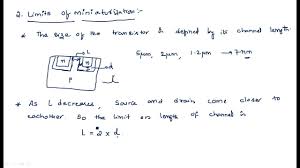 2. Limits of miniaturization:-
* The size of the transistor is defined by its channel length.
5μm, 2μm, 1.2μm → 7nm
L
n n
d
P
* As L decreases, source and drain come closer to
eachother. So the limit on length of channel is
L = 2 x d